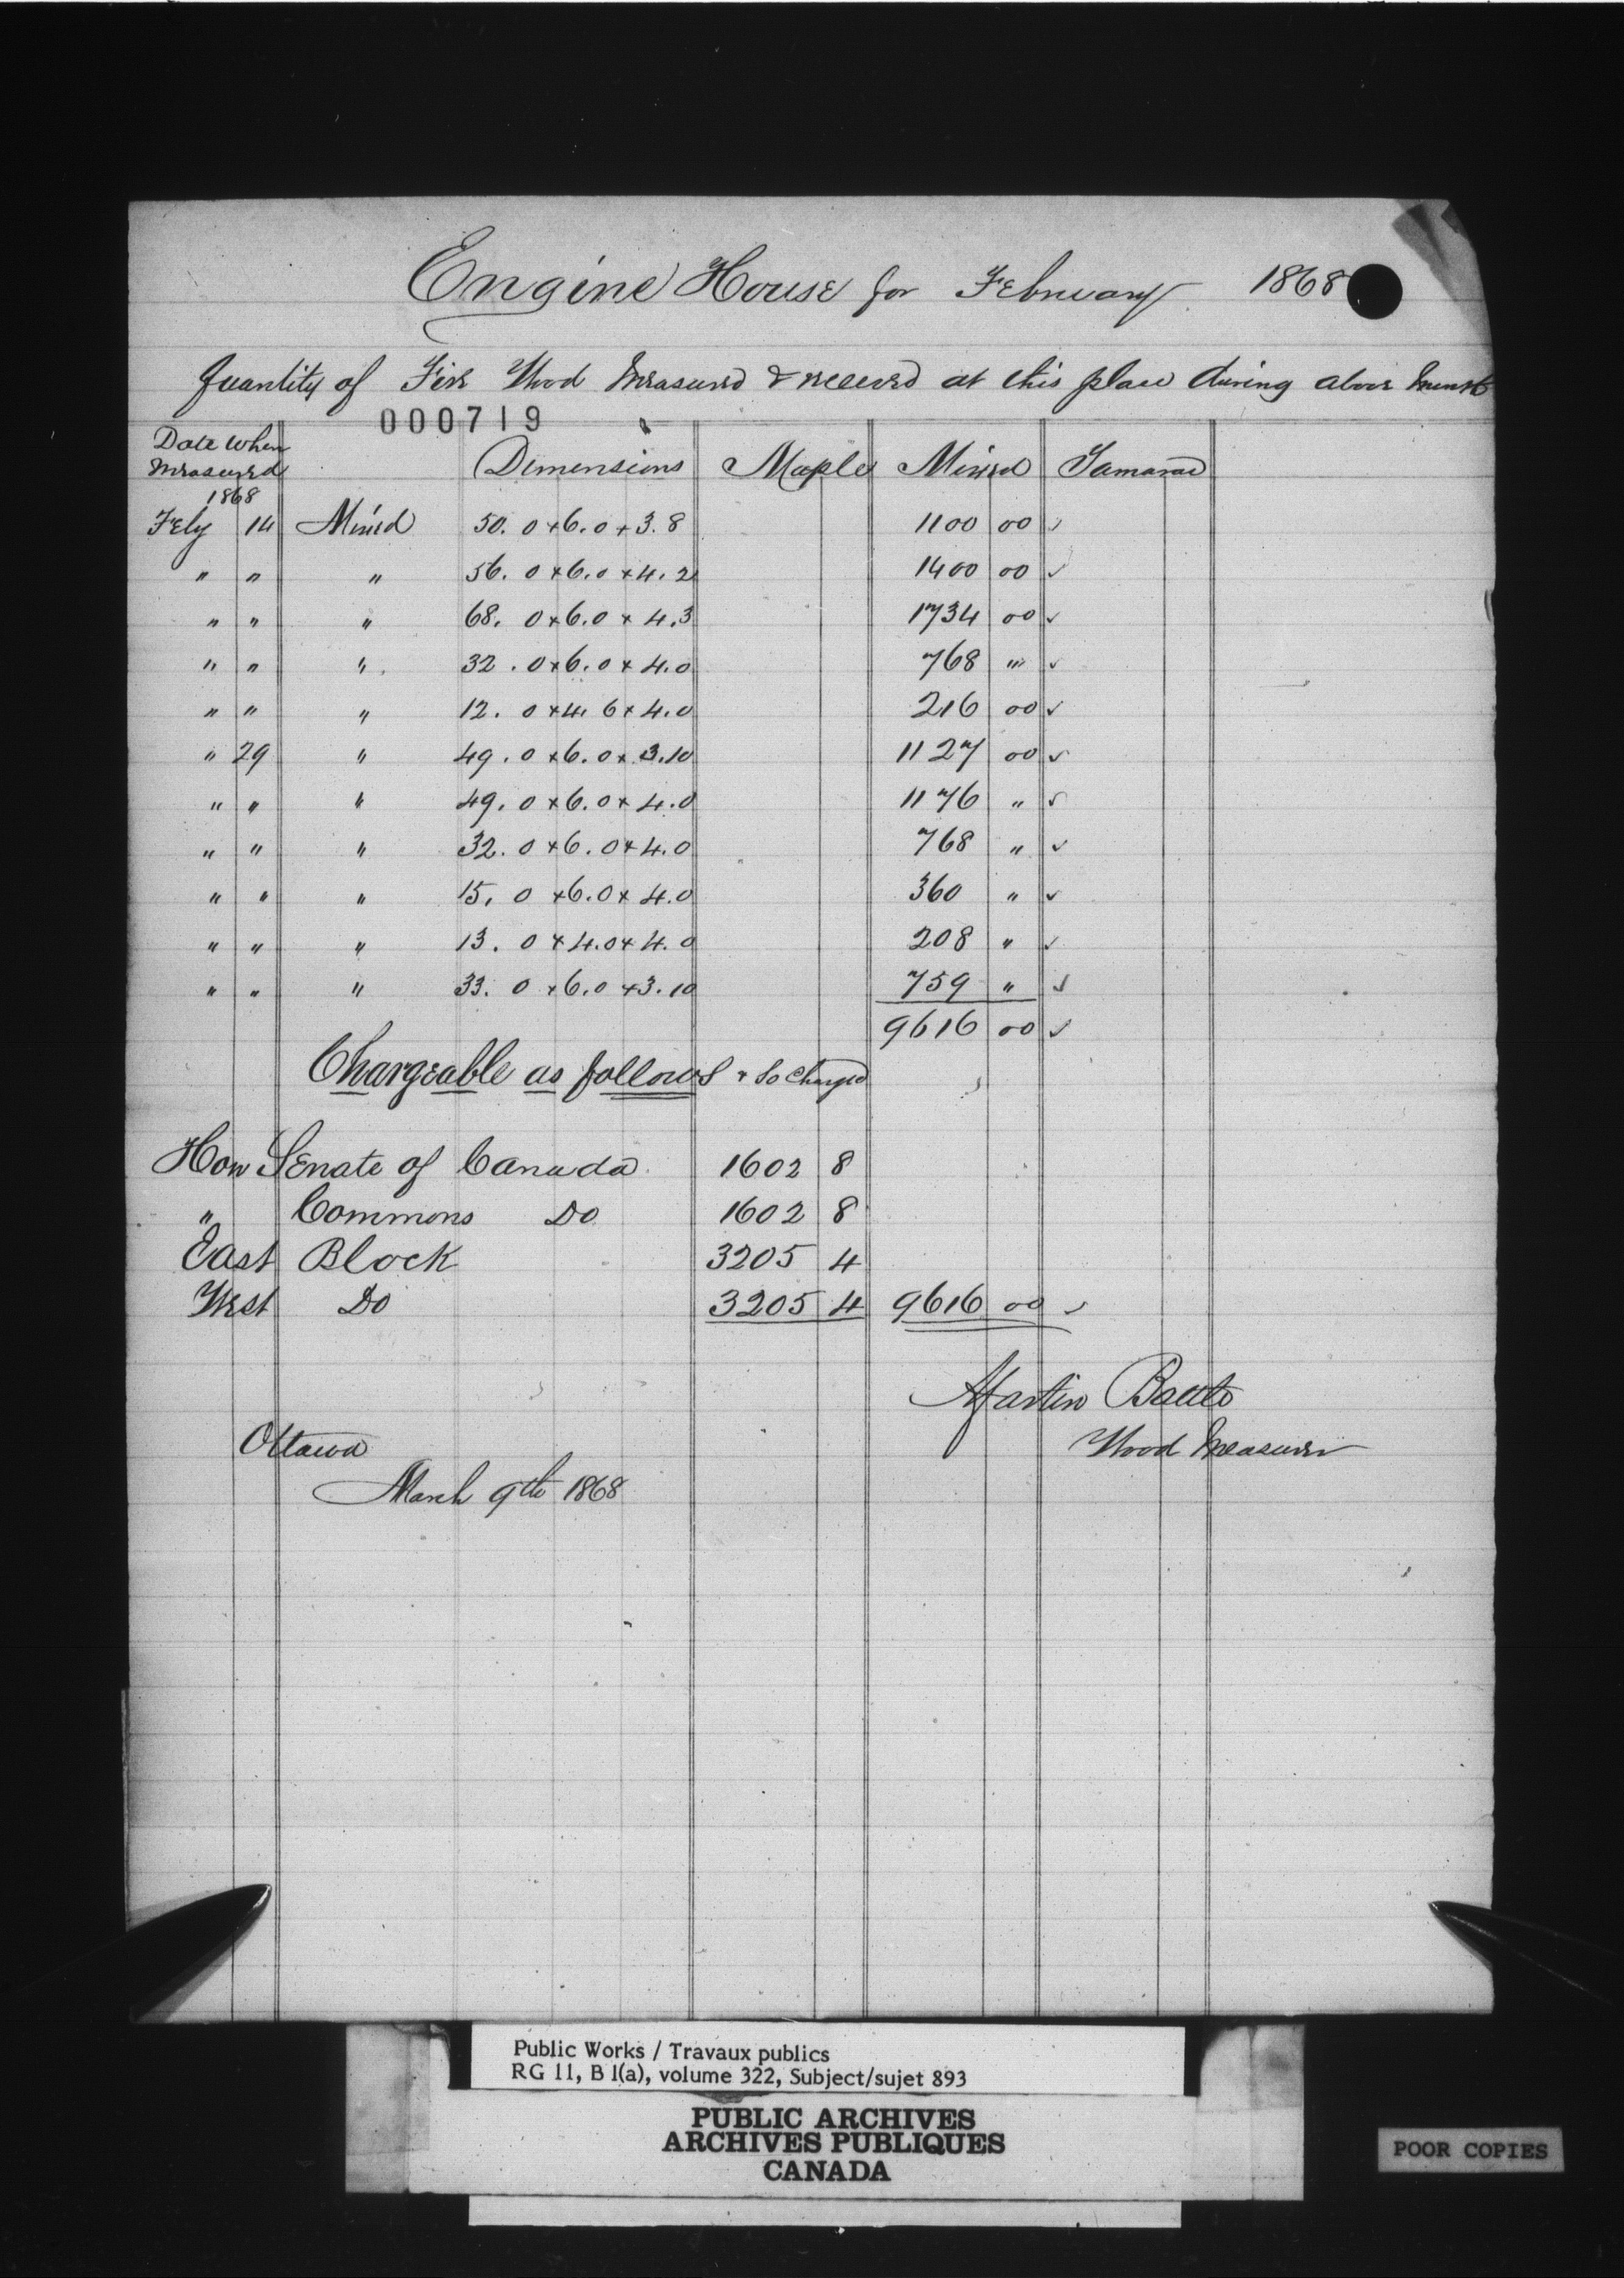 Engine House for February 1868
Quantity of Fire Wood Measured & received at this place during above month
000719
Date when Measured Dimensions Maple Mixed Tamarac
1868
Feby 14 Mixed 50. 0 x 6. 0 x 3. 8 1100 00 ✓
" " " 56. 0 x 6. 0 x 4. 2 1400 00 ✓
" " " 68. 0 x 6. 0 x 4. 3 1734 00 ✓
" " " 32. 0 x 6. 0 x 4. 0 768 " ✓
" " " 12. 0 x 4. 6 x 4. 0 216 00 ✓
" 29 " 49. 0 x 6. 0 x 3. 10 1127 00 ✓
" " " 49. 0 x 6. 0 x 4. 0 1176 " ✓
" " " 32. 0 x 6. 0 x 4. 0 768 " ✓
" " " 15. 0 x 6. 0 x 4. 0 360 " ✓
" " " 13. 0 x 4. 0 x 4. 0 208 " ✓
" " " 33. 0 x 6. 0 x 3. 10 759 " ✓
9616 00 ✓
Chargeable as follows & so charged
Hon Senate of Canada 1602 8
" Commons Do 1602 8
East Block 3205 4
West Do 3205 4 9616 00 ✓
Martin Battle
Ottawa Wood Measurer
March 9th 1868
Public Works / Travaux publics
RG 11, B 1(a), volume 322, Subject/sujet 893
PUBLIC ARCHIVES
ARCHIVES PUBLIQUES
CANADA
POOR COPIES